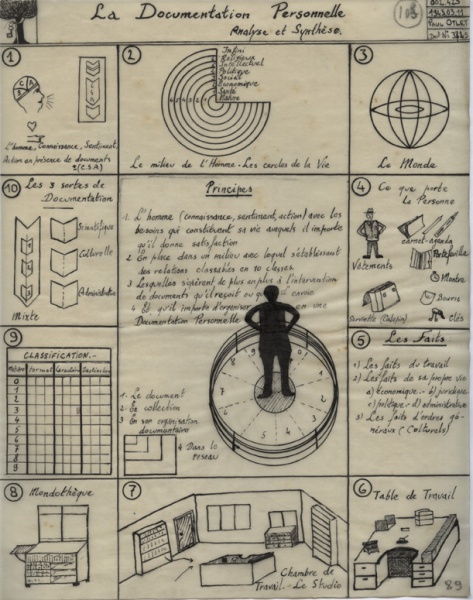 La Documentation Personnelle
Analyse et Synthèse.
108
Paul OTLET
1
C
A
S
L'homme, Connaissance, Sentiment,
Action en présence de documents
(C.S.A)
2
Infini
Religieux
Intellectuel
Politique
Social
Economique
Santé
Nature
Le milieu de l'Homme. Les cercles de la Vie
3
Le Monde
10
Les 3 sortes de
Documentation
Scientifique
Culturelle
Administrative
Mixte
Principes
1. L'homme (connaissance, sentiment, action) avec les
besoins qui constituent sa vie auxquels il importe
qu'il donne satisfaction
2. En place dans un milieu avec lequel s'établissent
des relations classables en 10 classes
3. Lesquelles s'opèrent de plus en plus à l'intervention
de documents qu'il reçoit ou qu'il envoie
4. Et qu'il importe d'organiser en une
Documentation Personnelle
1. Le document
2. En collection
3. En son organisation
documentaire
4 Dans le
réseau
4
Ce que porte
la Personne
carnet-agenda
Portefeuille
Vêtements
Montre
Bours
Clés
Serviette
5
Les Faits
1) Les faits du travail
2) Les faits de sa propre vie
a) économique - b) juridique
c) politique - d) administrative
3) Les faits d'ordres gé-
néraux (Culturels)
9
CLASSIFICATION.-
Matière Format Caractère Destination
0
1
2
3
4
5
6
7
8
9
8
Mondothèque
7
Chambre de
Travail - Le Studio
6
Table de Travail
89